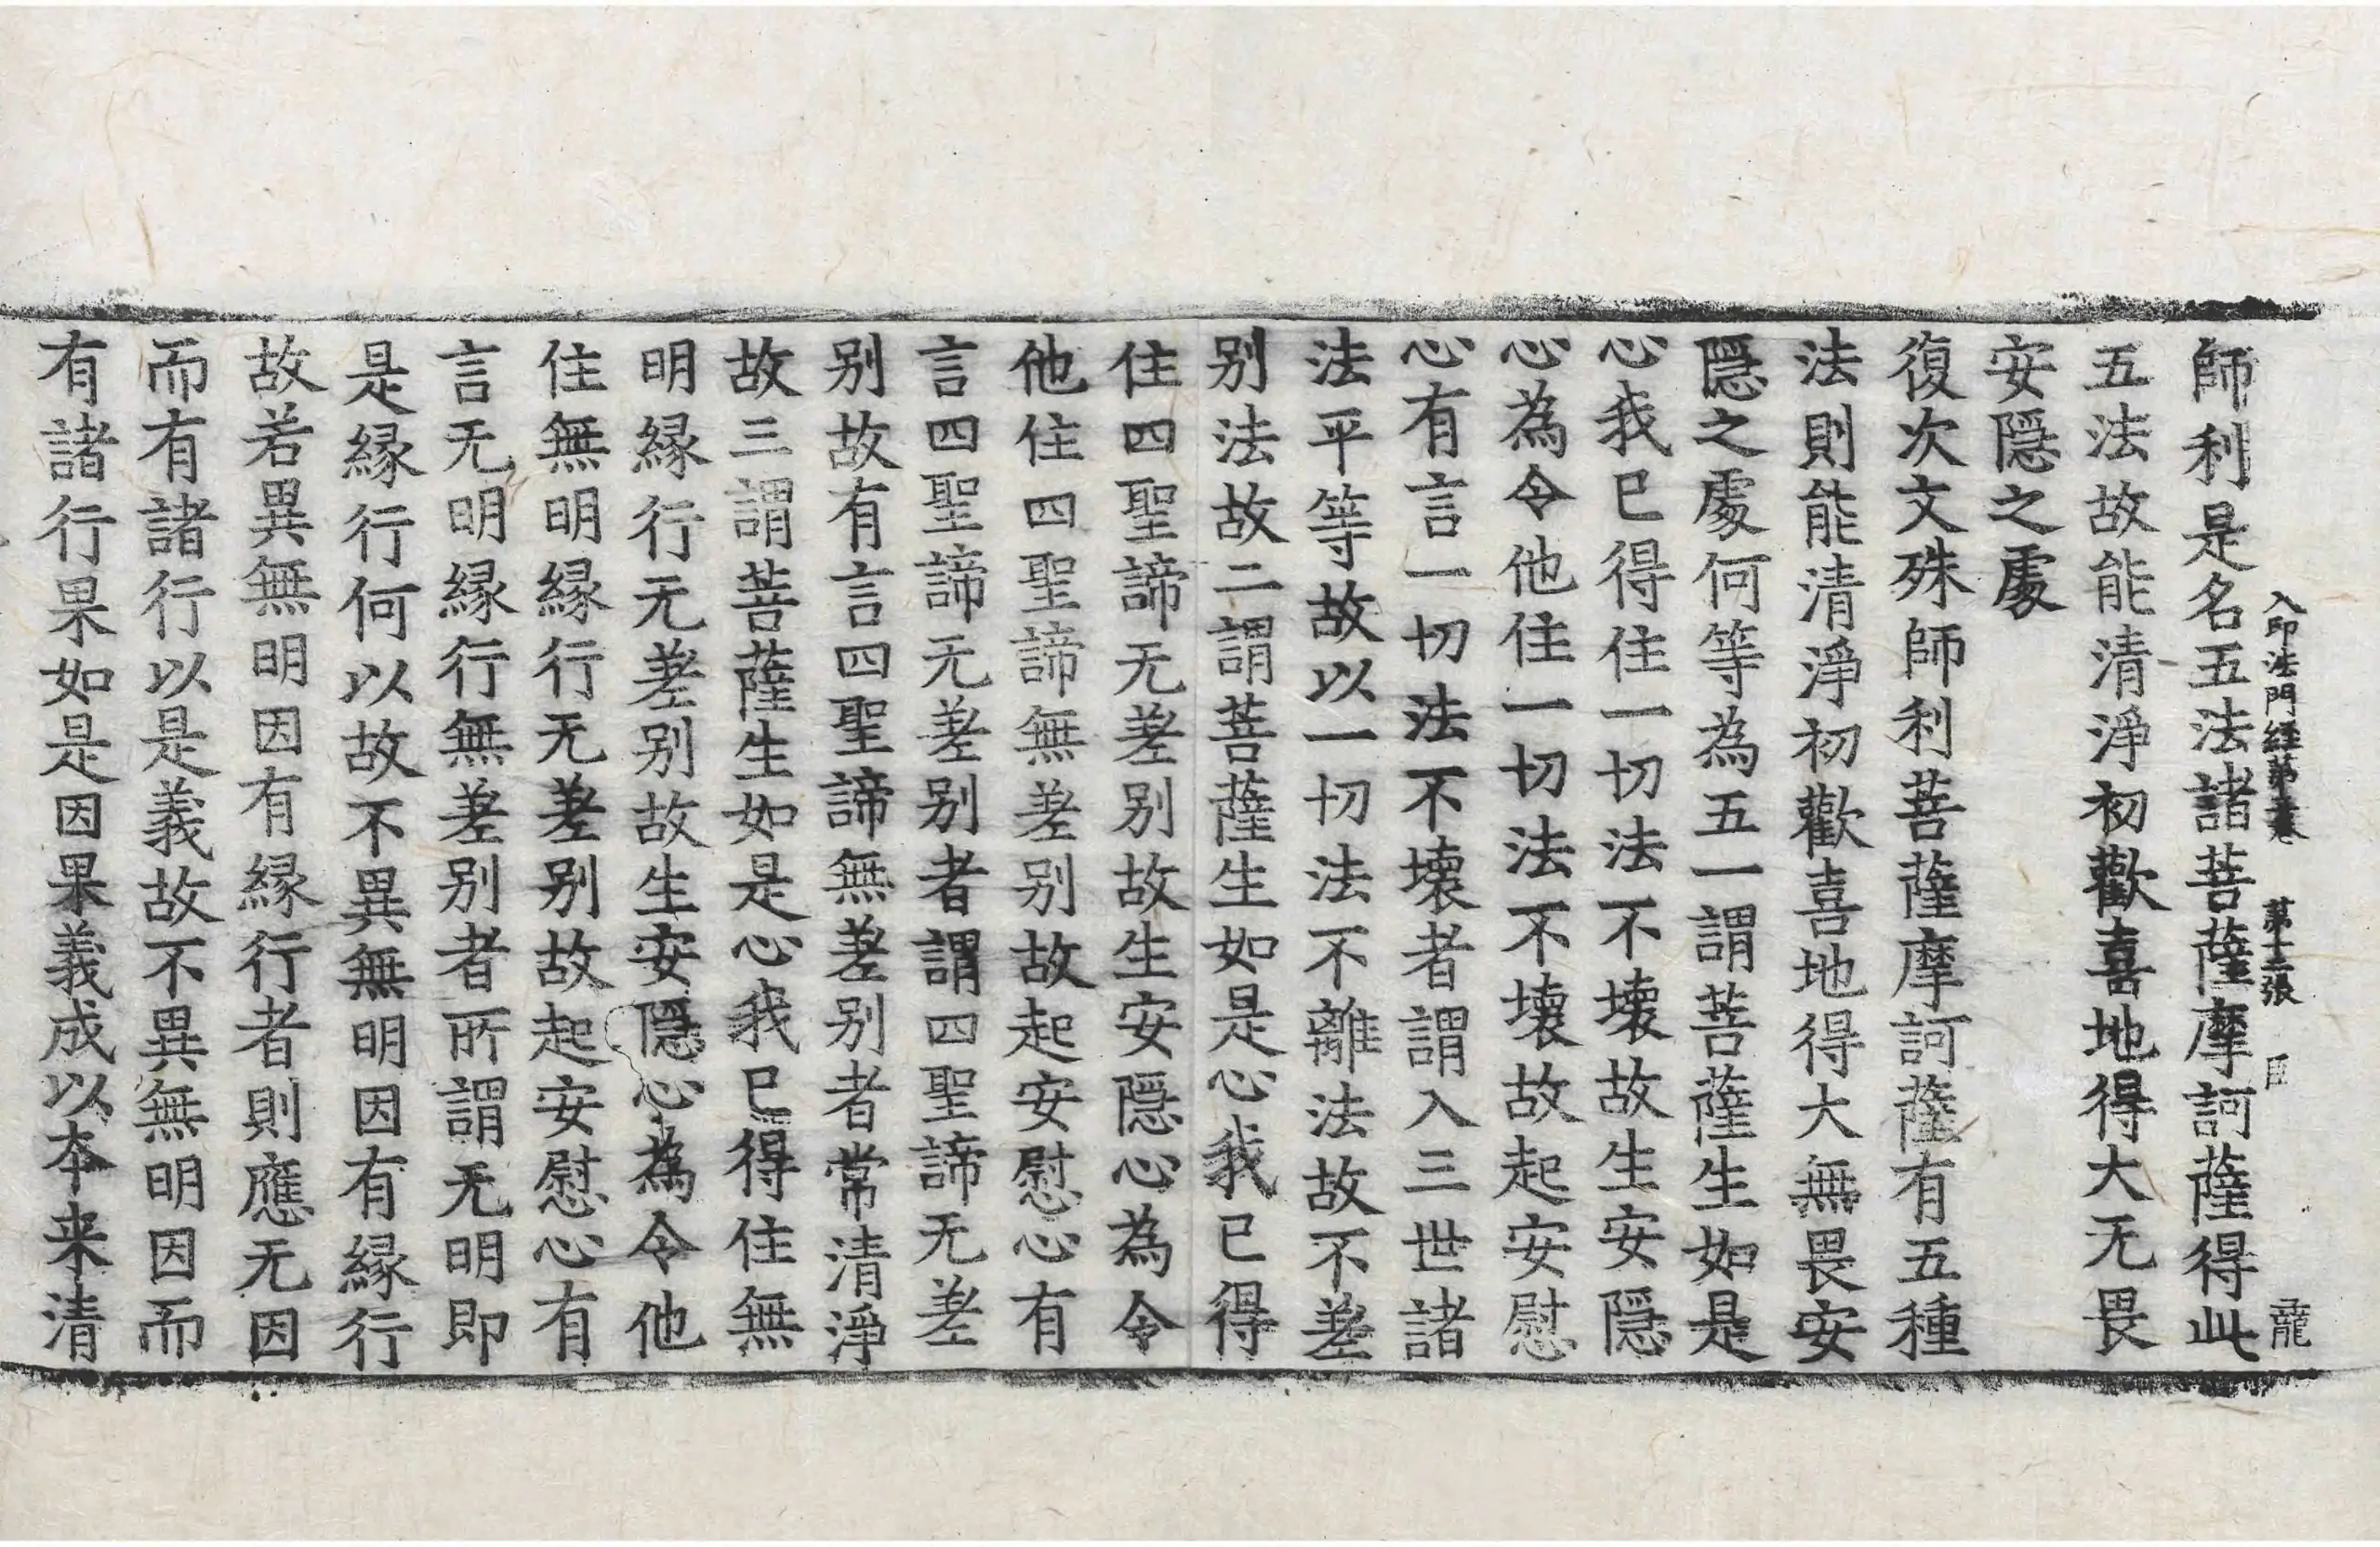 入印法門經第五卷 第十二張 龍
師利是名五法諸菩薩摩訶薩得此
五法故能清淨初歡喜地得大无畏
安隱之處
復次文殊師利菩薩摩訶薩有五種
法則能清淨初歡喜地得大無畏安
隱之處何等為五一謂菩薩生如是
心我已得住一切法不壞故生安隱
心為令他住一切法不壞故起安慰
心有言一切法不壞者謂入三世諸
法平等故以一切法不離法故不差
别法故二謂菩薩生如是心我已得
住四聖諦无差别故生安隱心為令
他住四聖諦無差别故起安慰心有
言四聖諦无差别者謂四聖諦无差
别故有言四聖諦無差别者常清淨
故三謂菩薩生如是心我已得住無
明緣行无差别故生安隱心為令他
住無明緣行无差别故起安慰心有
言无明緣行無差别者所謂无明即
是緣行何以故不異無明因有緣行
故若異無明因有緣行者則應无因
而有諸行以是義故不異無明因而
有諸行果如是因果義成以本来清